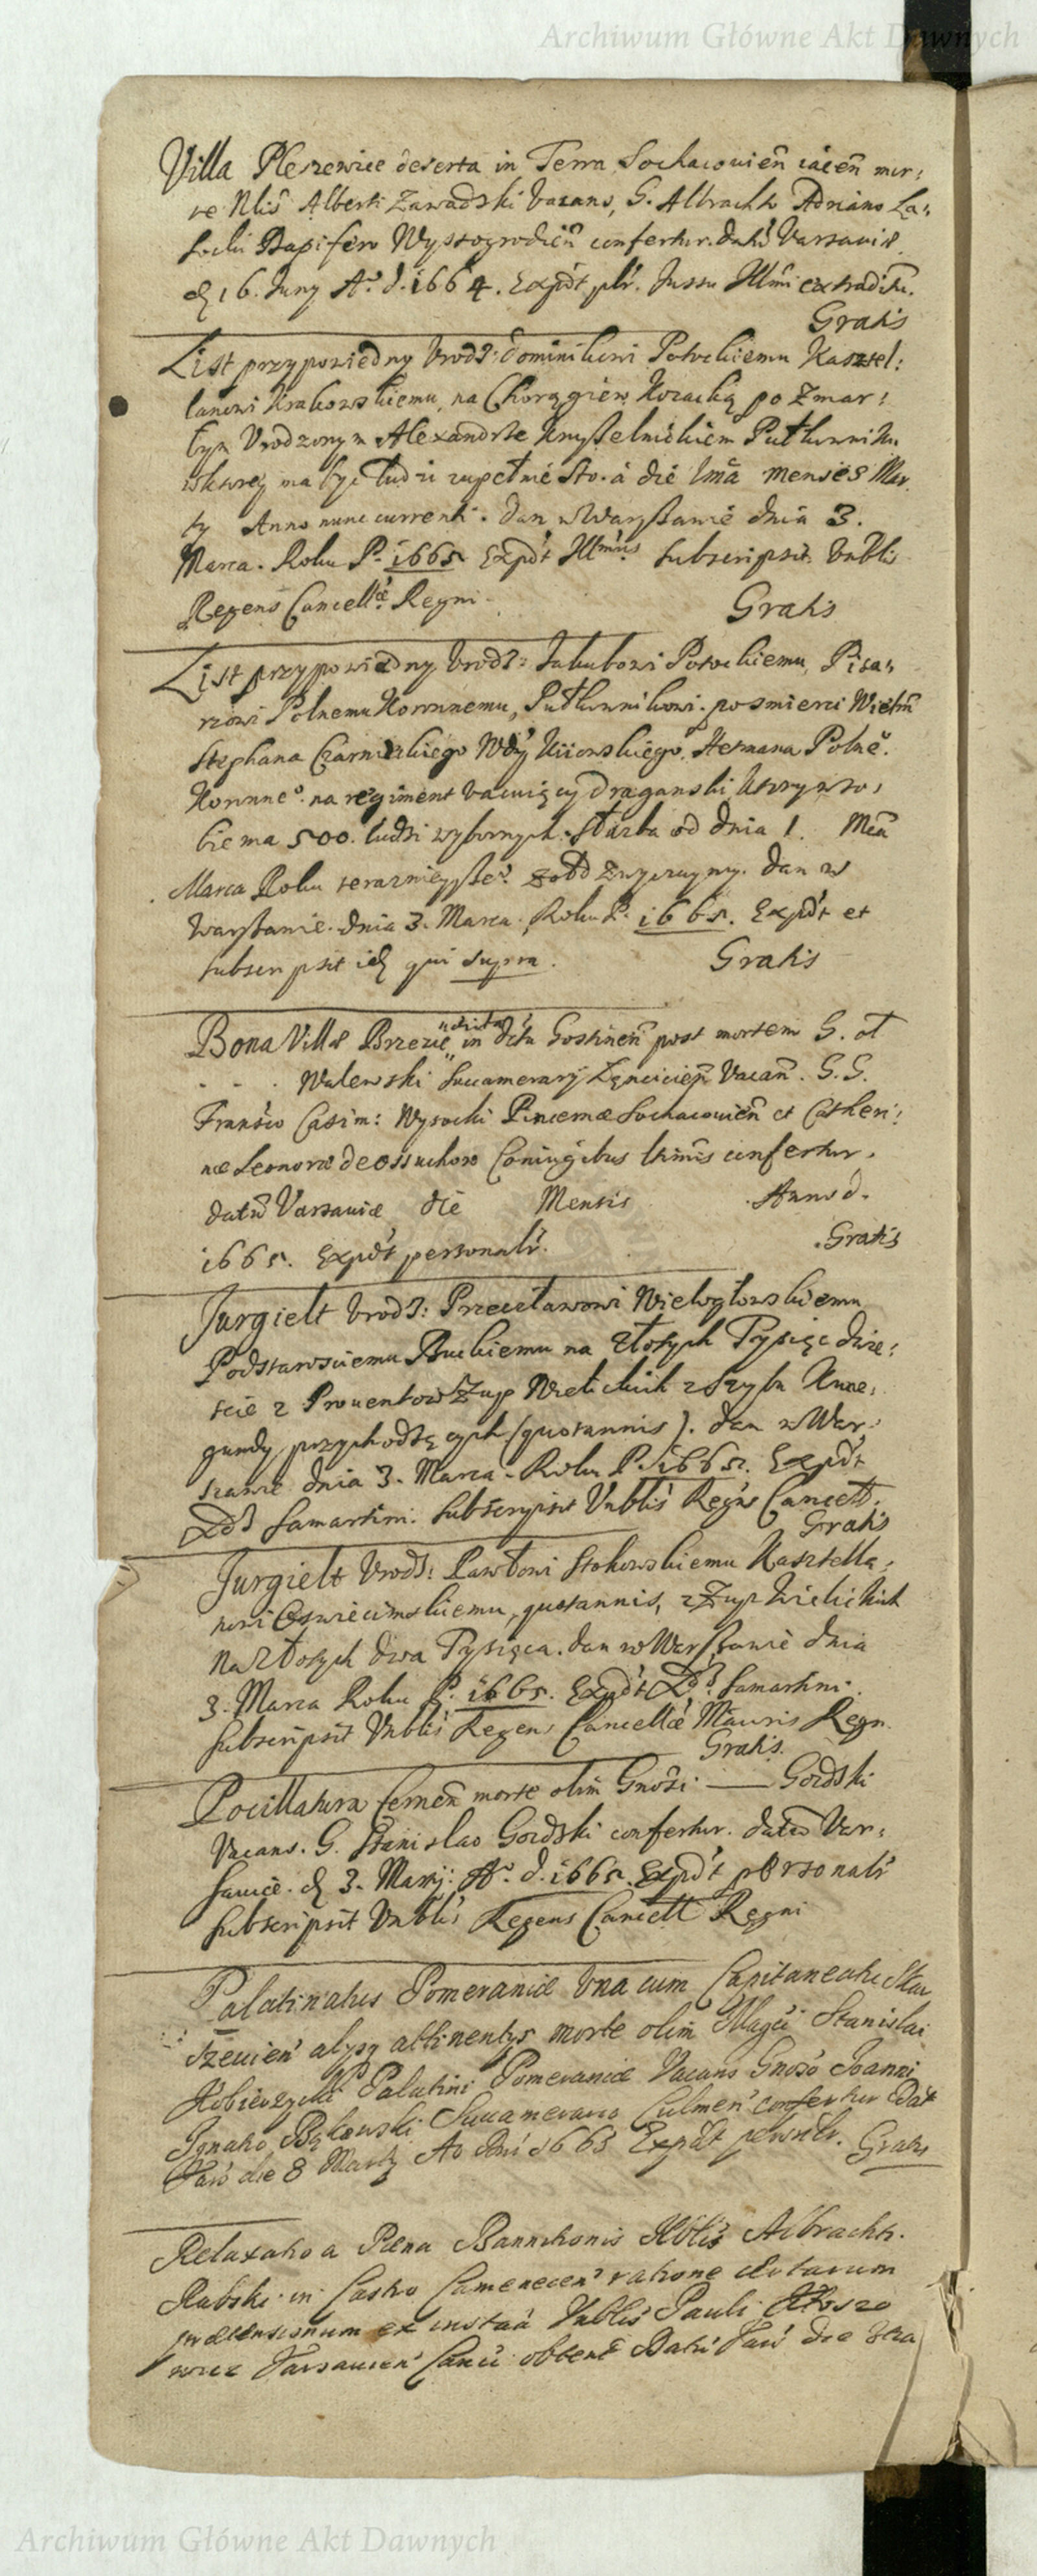 Archiwum Główne Akt Dawnych
Villa Pleszewice deserta in Terra Sochacouień iaceń mor:
te Nlis Alberti Zawadzki vacans, G. Albrachto Adriano La:
Dapifero Wyssogrodień confertur. Varsaviæ
16. Juny A° d. 1664. Expdt plr. Jussu Illmi extraditu.
Gratis
List przypowiedny Vrodz: Dominikowi Potockiemu Kasztel:
lanowi Krakowskiemu, na Chorągiew Kozacką po Zmar:
łym Vrodzonym Alexandrze Putkowniku
wktorey ma być ludzi zupełnie sto. à die 1ma Menses Mar
ty Anno nunc currenti. Dan w Warszawie dnia 3.
Marca. Roku P. 1665. Expdt Illmus subscripsit. Vrblis
Regens Cancellæ Regni.
Gratis
List przypowiedny Vrodz: Jakubowi Potockiemu, Pisa:
rzowi Polnemu Koronnemu, Pułkownikowi. po smierci Wielm
Stephana Czarnieckiego Wdy Kiiowskiego Hetmana Polne°.
Koronne° na regiment vacuiący draganski, ktory w so:
bie ma 500. ludzi wybornych. Służba od dnia 1. Mca
Marca Roku teraznieysze° żołd zwyczayny. Dan w
Warszawie. dnia 3. Marca. Roku P. 1665. Expdt et
subscripsit id qui supra.
Gratis
Bona Villæ Brzezie in Gostineń post mortem G. ol
. . . Walewski Succamerarÿ Łęncicień Vacań. G. G.
Casim: Wysocki Pincernæ Sochacouień et Catheri:
næ Leonoræ de Ossuchow Coniugibus confertur.
datū Varsaviæ die Mensis Anno d.
1665. Expdt personalr.
Gratis
Jurgielt Vrodz: Przecławowi Wielogłowskiemu
Podstarosciemu na złotych Tysiąc dwie:
scie z Prouentow Żup Wielickich z Szybu Kune:
gundy, przychodzących (quotannis). Dan w War:
szawie dnia 3. Marca. Roku P. 1665. Expdt
Samartini. Subscripsit Vrblis Regns Cancell.
Gratis
Jurgielt Vrodz: Pawłowi Stokowskiemu Kasztella:
nowi Oswiecimskiemu, quotannis, z Żup Wielickich
na złotych dwa Tysiąca. Dan w Warszawie dnia
3. Marca Roku P. 1665. Expdt Samartini.
Subscripsit Vrblis Regens Cancellæ Maioris Regn.
Gratis.
Pocillatura morte olim Gnosi — Gozdski
Vacans. G. Stanislao Gozdski confertur. datū Var:
saviæ. d 3. Martij A° d. 1665. Expdt personalr
Subscripsit Vrblis Regens Cancell Regni
Palatinatus Pomeraniæ Vna cum Capitaneatu Skar
szeuień alysq attinentys morte olim Magci Stanislai
Kobierzycki Palatini Pomeraniæ Vacans Gnoso Joanni
Ignatio Bąkowski Succamerario Culmeń confertur Dat
Vars die 8 Marty Ao Dni 1665 Expdt personlr. Gratis
Relaxatio a Pæna Bannitionis Nblis Albrachti
Rabski in Castro Cameneceń ratione
prætensionum ex instaā Vrblis Pauli
wicz Varsavień obtent Datū Vars die
Archiwum Główne Akt Dawnych